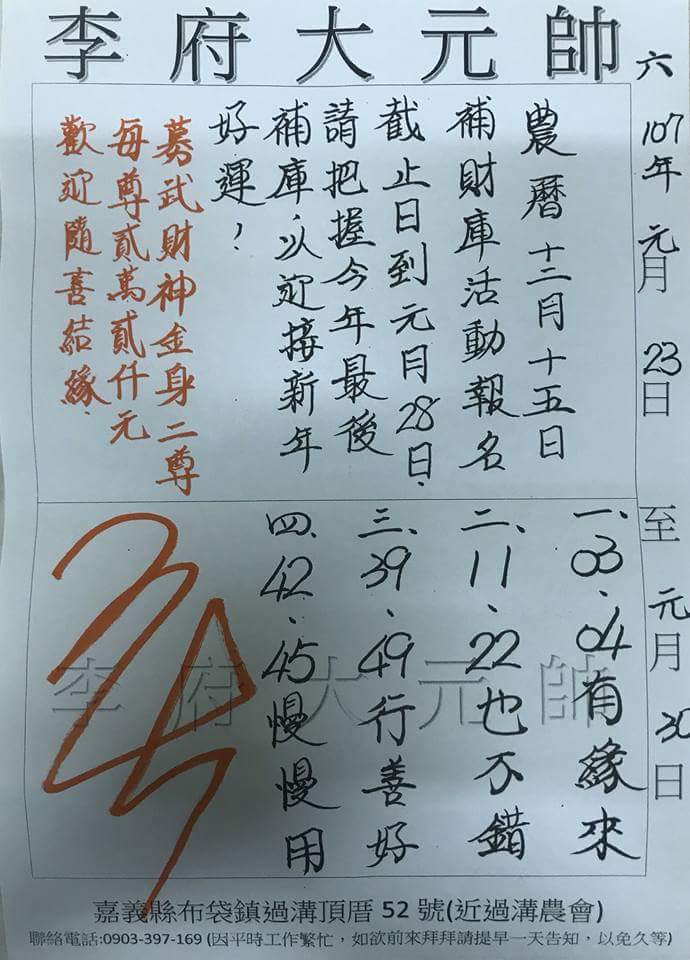 李府大元帥
六
107年 元月 23日 至 元月 30日
農曆十二月十五日
補財庫活動報名
截止日到元月28日、
請把握今年最後
補庫、以迎接新年
好運！
募武財神金身二尊
每尊貳萬貳仟元
歡迎隨喜結緣、
一、03、04有緣來
二、11、22也不錯
三、39、49行善好
四、42、45慢慢用
李府大元帥
嘉義縣布袋鎮過溝頂厝 52 號(近過溝農會)
聯絡電話:0903-397-169 (因平時工作繁忙，如欲前來拜拜請提早一天告知，以免久等)